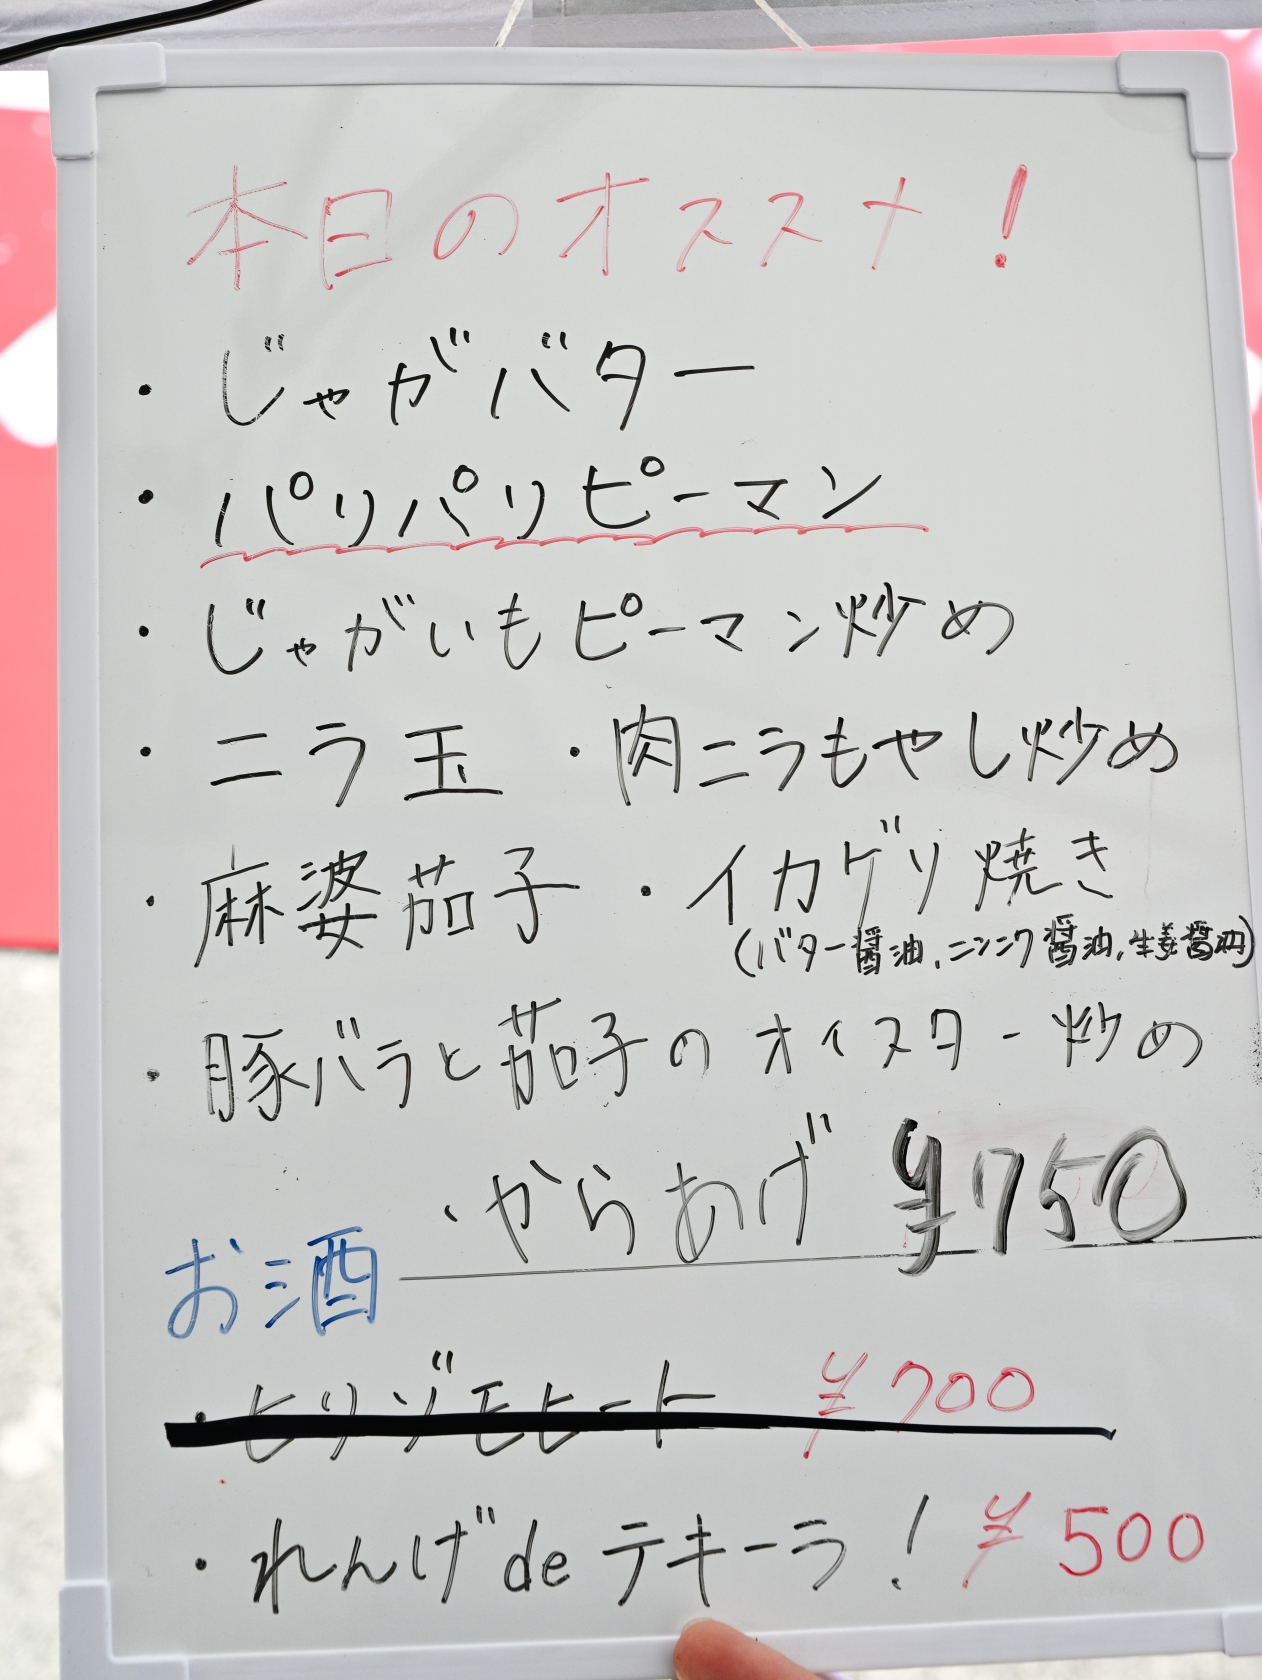 本日のオススメ!
・じゃがバター
・パリパリピーマン
・じゃがいもピーマン炒め
・ニラ玉 ・肉ニラもやし炒め
・麻婆茄子 ・イカゲソ焼き
(バター醤油,ニンニク醤油,生姜醤油)
・豚バラと茄子のオイスター炒め
・からあげ ¥750
お酒
・ヒリゾモヒート ¥700
・れんげdeテキーラ! ¥500